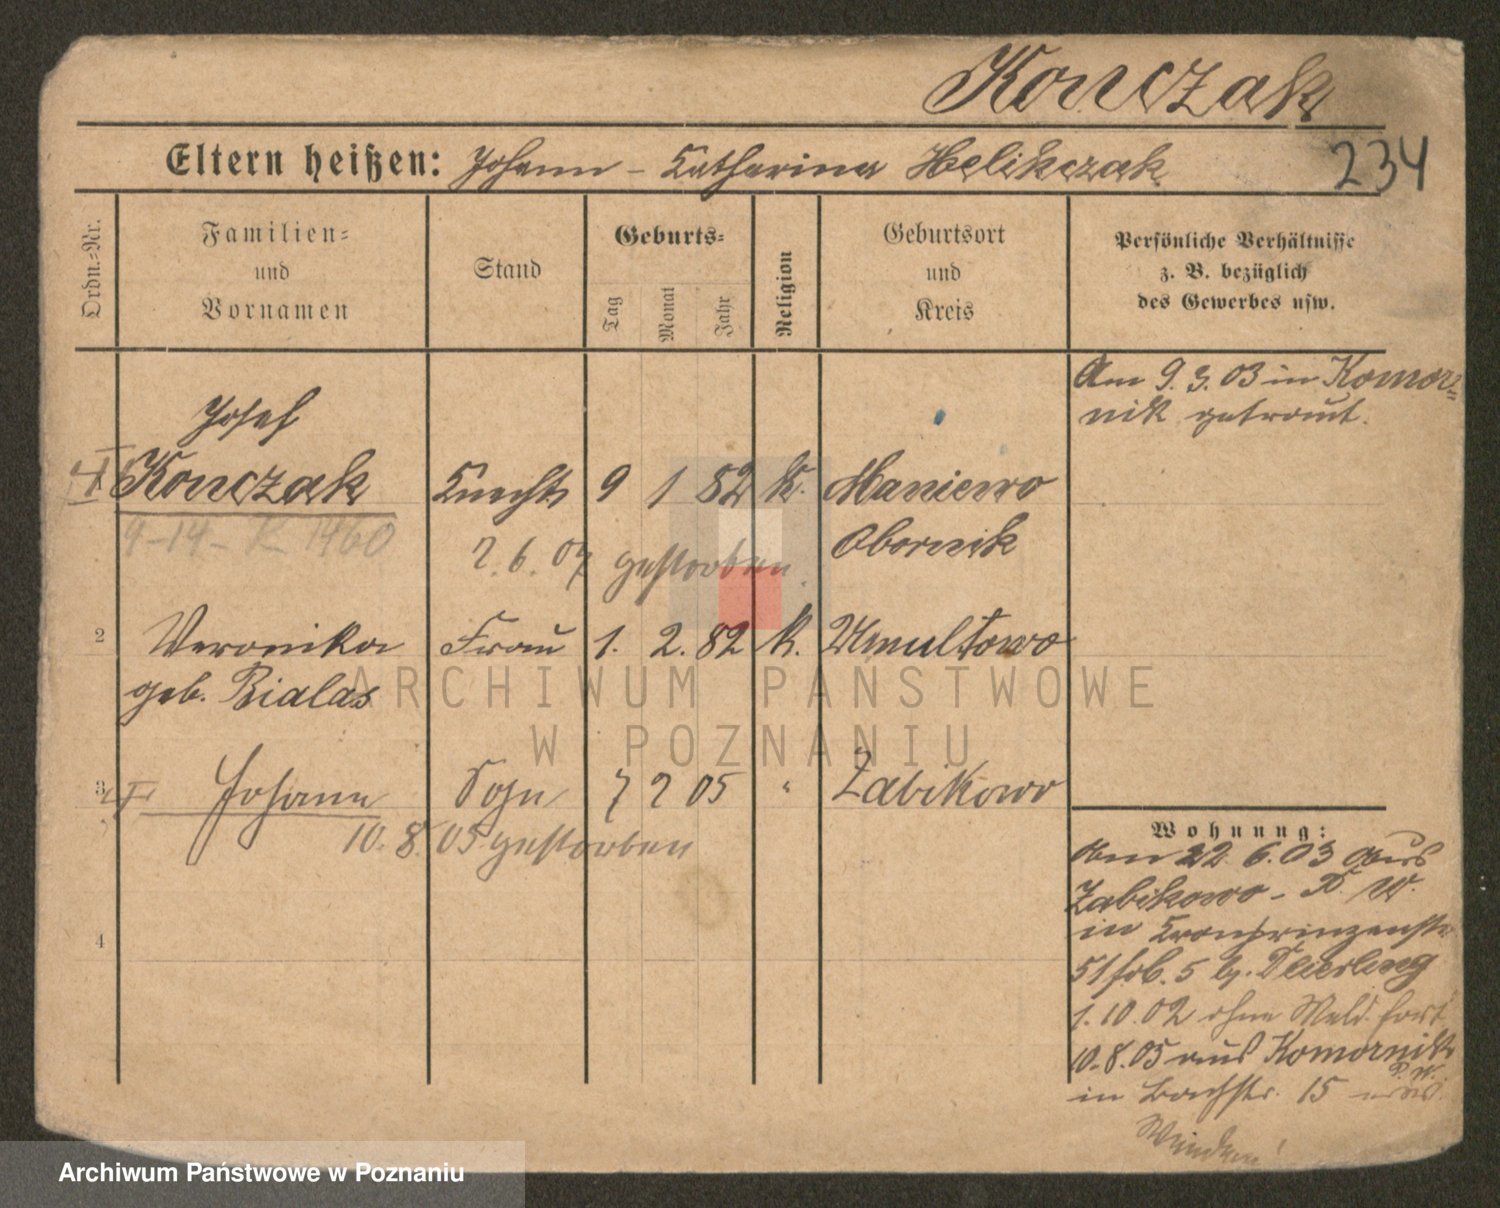 Konczak
Eltern heißen: Johann - Katharina Helikczak
234
Ordn.-Nr.
Familien-
und
Vornamen
Stand
Geburts-
Tag
Monat
Jahr
Religion
Geburtsort
und
Kreis
Persönliche Verhältnisse
z. B. bezüglich
des Gewerbes usw.
Am 9.3.03 in Komor-
nik getraut.
Josef
Konczak Knecht 9 1 82 K. Maniewo
Obornik
9-14- K 1960
2.6.07 gestorben.
2 Veronika Frau 1. 2. 82 K. Umultowo
geb. Bialas
3 Johann Sohn 7 2 05 " Zabikowo
10.8.05 gestorben
4
Wohnung:
am 22 6.03 aus
Zabikowo - P. W.
in Kronprinzenstr
51 1. 5 b.
1.10.02 ohne Meld. fort
10.8.05 aus Komornik
P. W.
in Bachstr. 15
ARCHIWUM PAŃSTWOWE
W POZNANIU
Archiwum Państwowe w Poznaniu